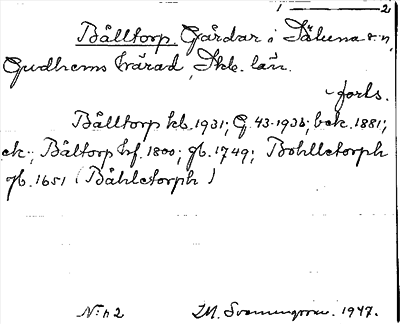 1 — 2
Bålltorp. Gårdar i Säluna sn,
Gudhems härad, Skb. län.
forts.
Bålltorp kb. 1931; G. 43-1933; bek. 1881;
ek.; Båltorp hf. 1800; gb. 1749; Bohlletorph
gb. 1651 (Båhletorph)
N:r 2 M. 1947.